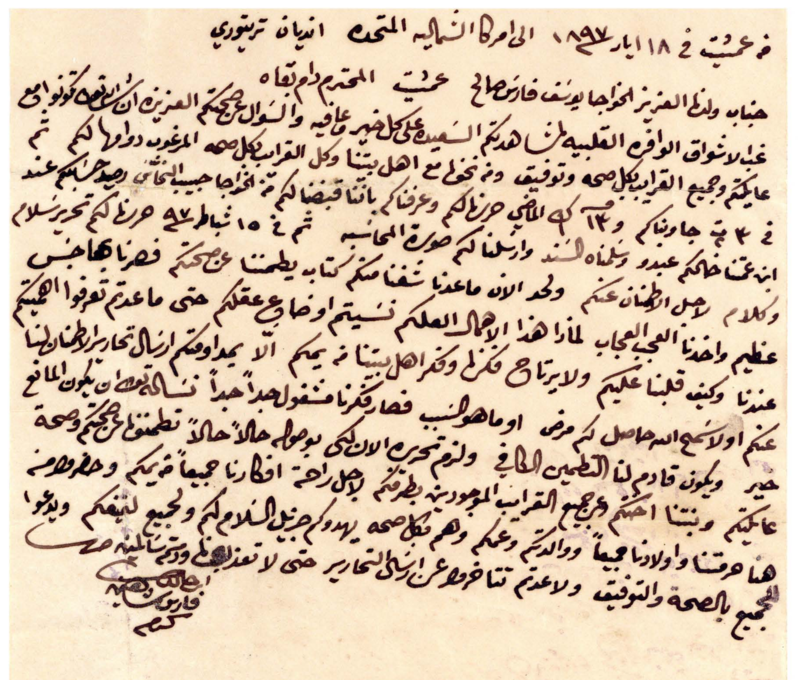 من عمشيت في ١٨ ايار ١٨٩٧ الى امركا الشماليه المتحده انديان تريتوري
جناب ولدنا العزيز الخواجا يوسف فارس صالح عمشيت المحترم دام بقاه
غب الاشواق الوافره القلبيه لمشاهدتكم السعيده على كل خير وعافيه والسوال عن صحتكم العزيزه ان شاالله تعالى تكونوا مع
عايلتكم وجميع القرايب بكل صحه وتوفيق ومن نحونا مع اهل بيتنا وكل القرايب بكل صحه المرغوب دوامها لكم ثم
في ٣ جاوبناكم و ١٣ ك الماضي حررنا لكم وعرفناكم باننا قبضنا لكم من الخواجا حبيب النحاس رصيد حسابكم عند
ابن عمنا خالكم عبدو وسلمناه السند وارسلنا لكم صورة المحاسبه ثم في ١٥ شباط ٩٧ حررنا لكم تحرير سلام
وكلام لاجل الاطمئنان عنكم ولحد الان ما عدنا شفنا منكم كتاب يطمننا عن صحتكم فصرنا بهاجس
عظيم واخذنا العجب العجاب لماذا هذا الاهمال العلكم نسيتم او ضاع عقلكم حتى ما عدتم تعرفوا اهميتكم
عندنا وكيف قلبنا عليكم ولا يرتاح فكرنا وفكر اهل بيتنا من يمكم الا بمداومتكم ارسال تحارير الاطمنان لنا
عنكم او لا سمح الله حاصل لكم مرض او ما هو السبب فصار فكرنا مشغول جداً جداً نساله تعالى ان يكون المانع
خير ويكون قادم لنا التطمين الكافي ولزم تحريره الان لكي بوصوله حالاً حالاً تطمنونا عن صحتكم وصحة
عايلتكم وبنتنا اختكم وعن جميع القرايب الموجودين بطرفكم لاجل راحة افكارنا جميعاً من يمكم
هنا حرمتنا واولادنا جميعاً ووالدتكم وعمكم وهم بكل صحه يهدوكم جزيل السلام لكم ولجميع ويدعوا
للجميع بالصحة والتوفيق ولا عدتم تتاخروا عن ارسال التحارير حتى لا ودمتم سالمين
فارس
كرم